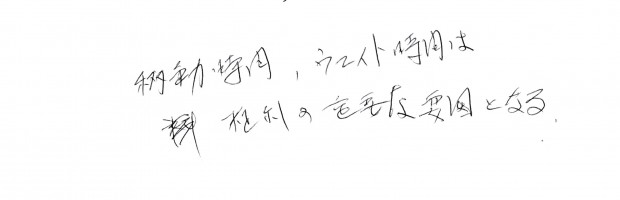 移動時間，ウエイト時間は
権利の重要な要因となる．